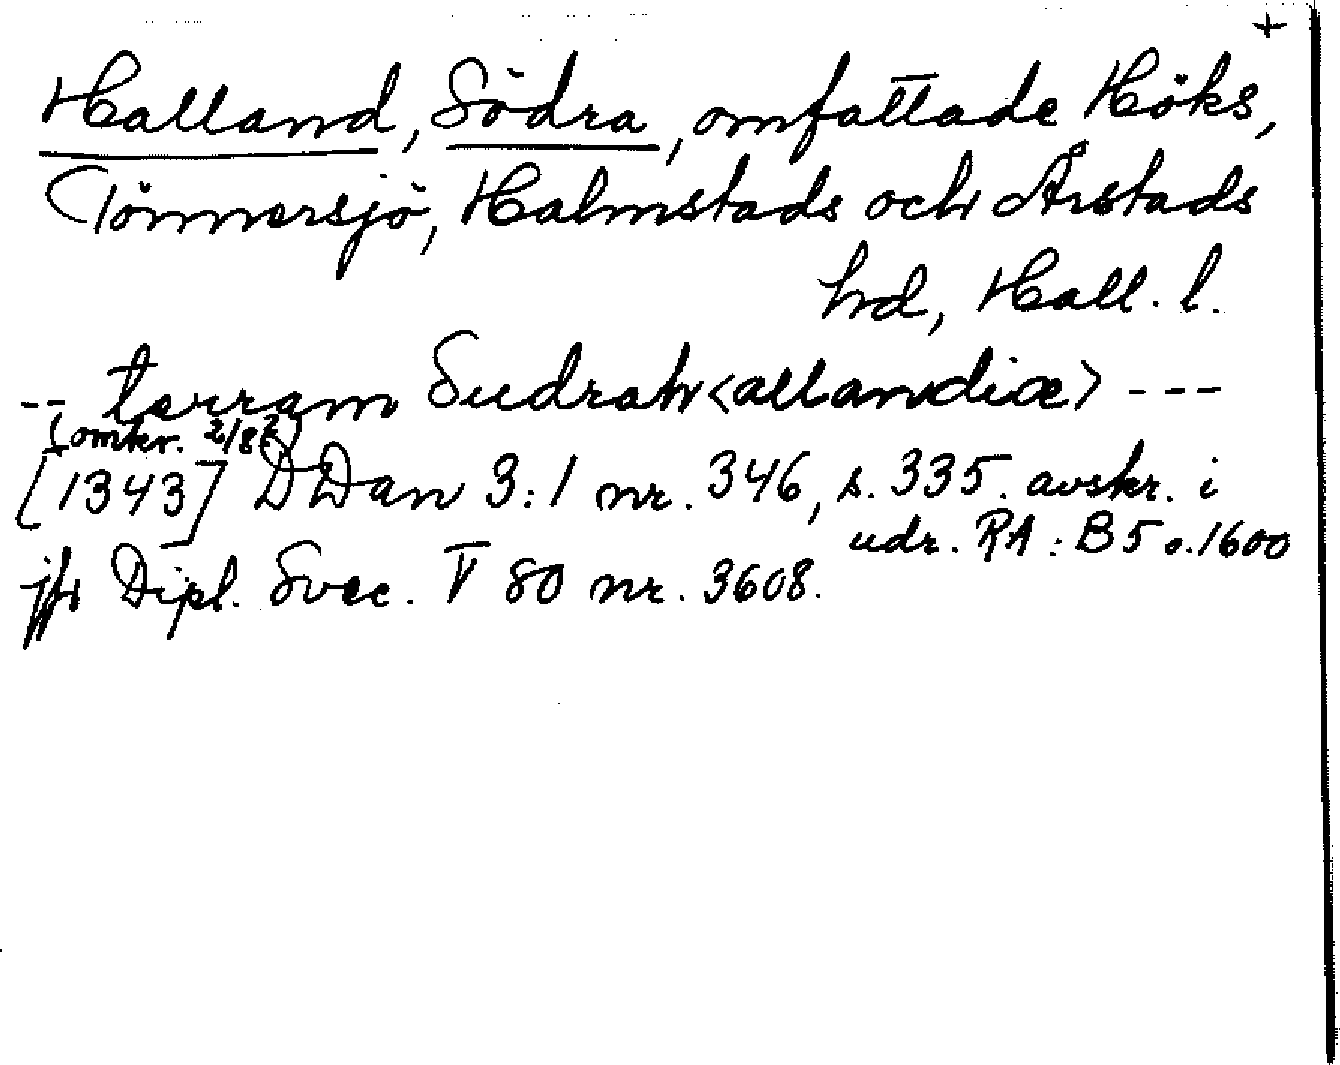 +
Halland, Södra, omfattade Höks,
Tönnersjö, Halmstads och Årstads
hd, Hall. l.
-- terram Sudrah<allandiæ> ---
(omkr. 2/8?)
[1343] DDan 3:1 nr. 346, s. 335. avskr. i
udr. RA: B5 o. 1600
jfr Dipl. Svec. V 80 nr. 3608.